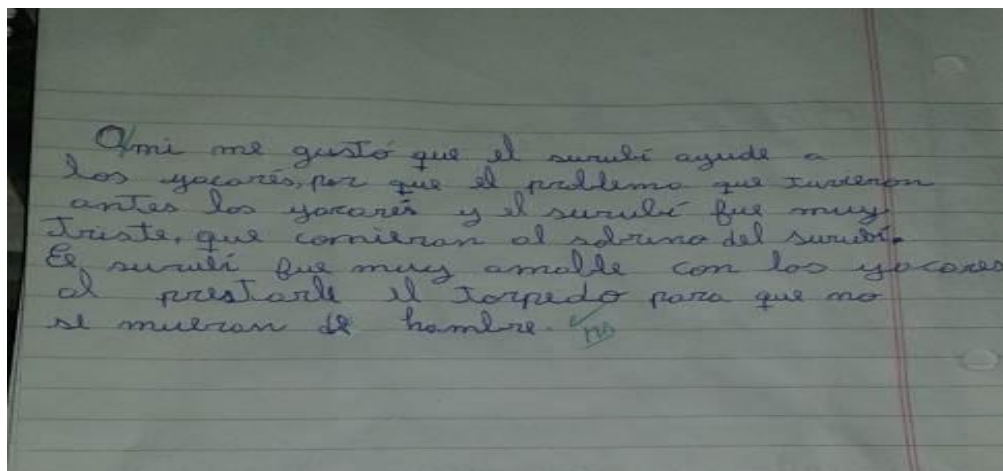 A mi me gustó que el surubí ayude a
los yacarés, por que el problema que tuvieron
antes los yacarés y el surubí fue muy
triste, que comieran al sobrino del surubí.
El surubí fue muy amable con los yacares
al prestarle el torpedo para que no
se mueran de hambre.